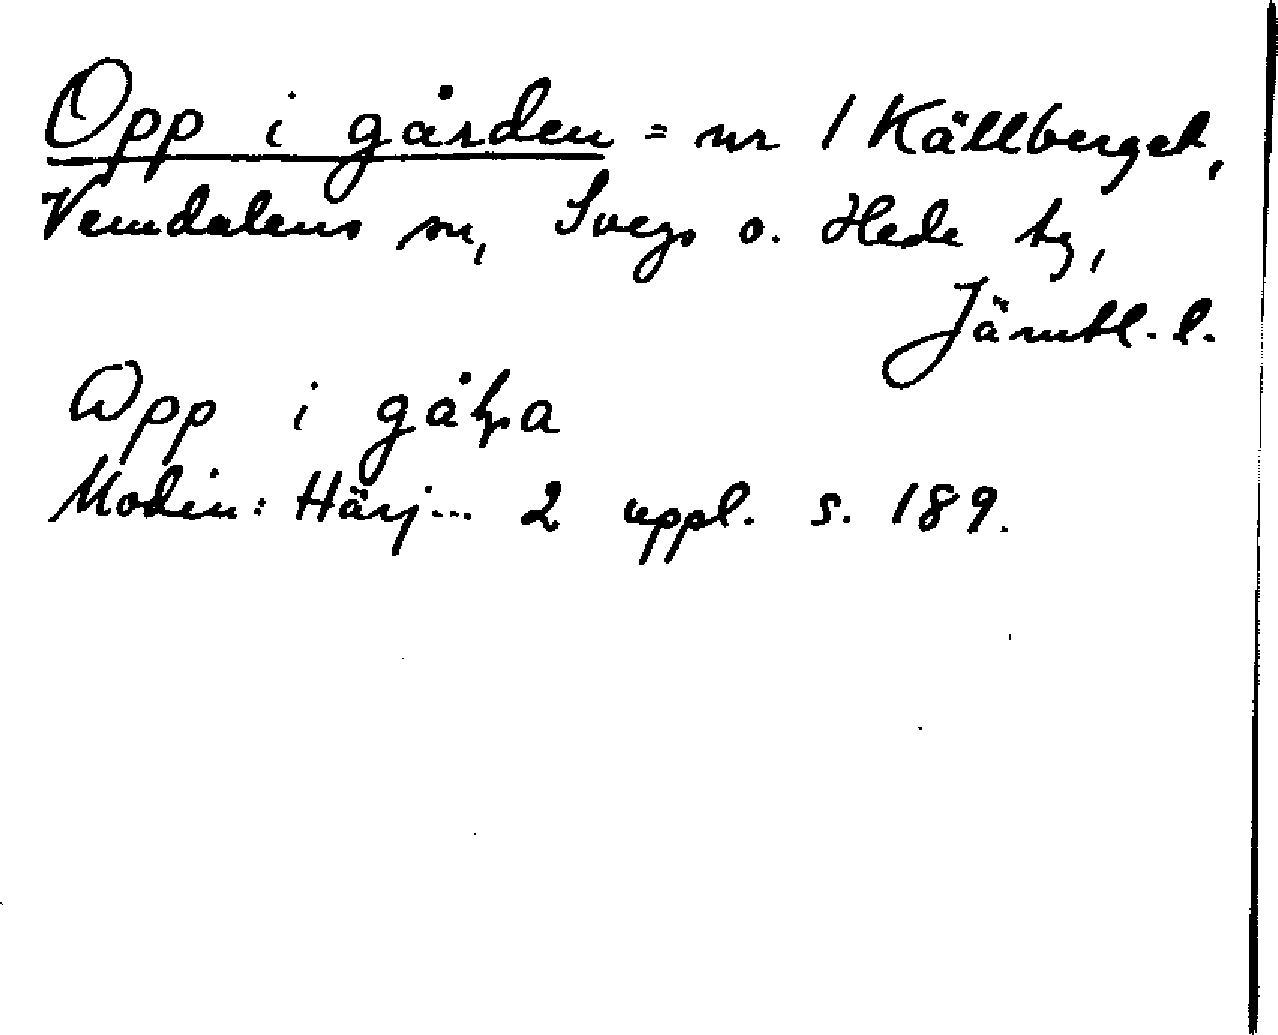 Opp i gården = nr 1 Källberget,
Vemdalens sn, Svegs o. Hede tg,
Jämtl. l.
Opp i gåḷ̣a
Modin: Härj... 2 uppl. s. 189.